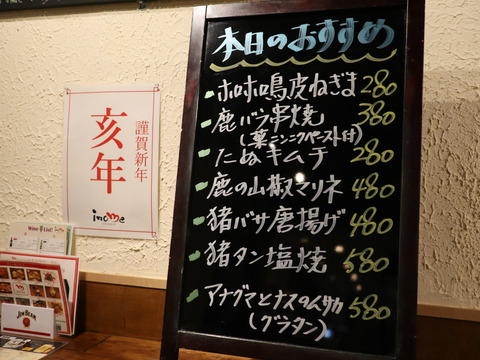 本日のおすすめ
ホロホロ鳥皮ねぎま 280
鹿バラ串焼 380
(葉ニンニクペースト付)
たぬキムチ 280
鹿の山椒マリネ 480
猪バサ唐揚げ 480
猪タン塩焼 580
アナグマとナスのムサカ 580
(グラタン)
謹賀新年
亥年
inome
Wine List!
JIM BEAM